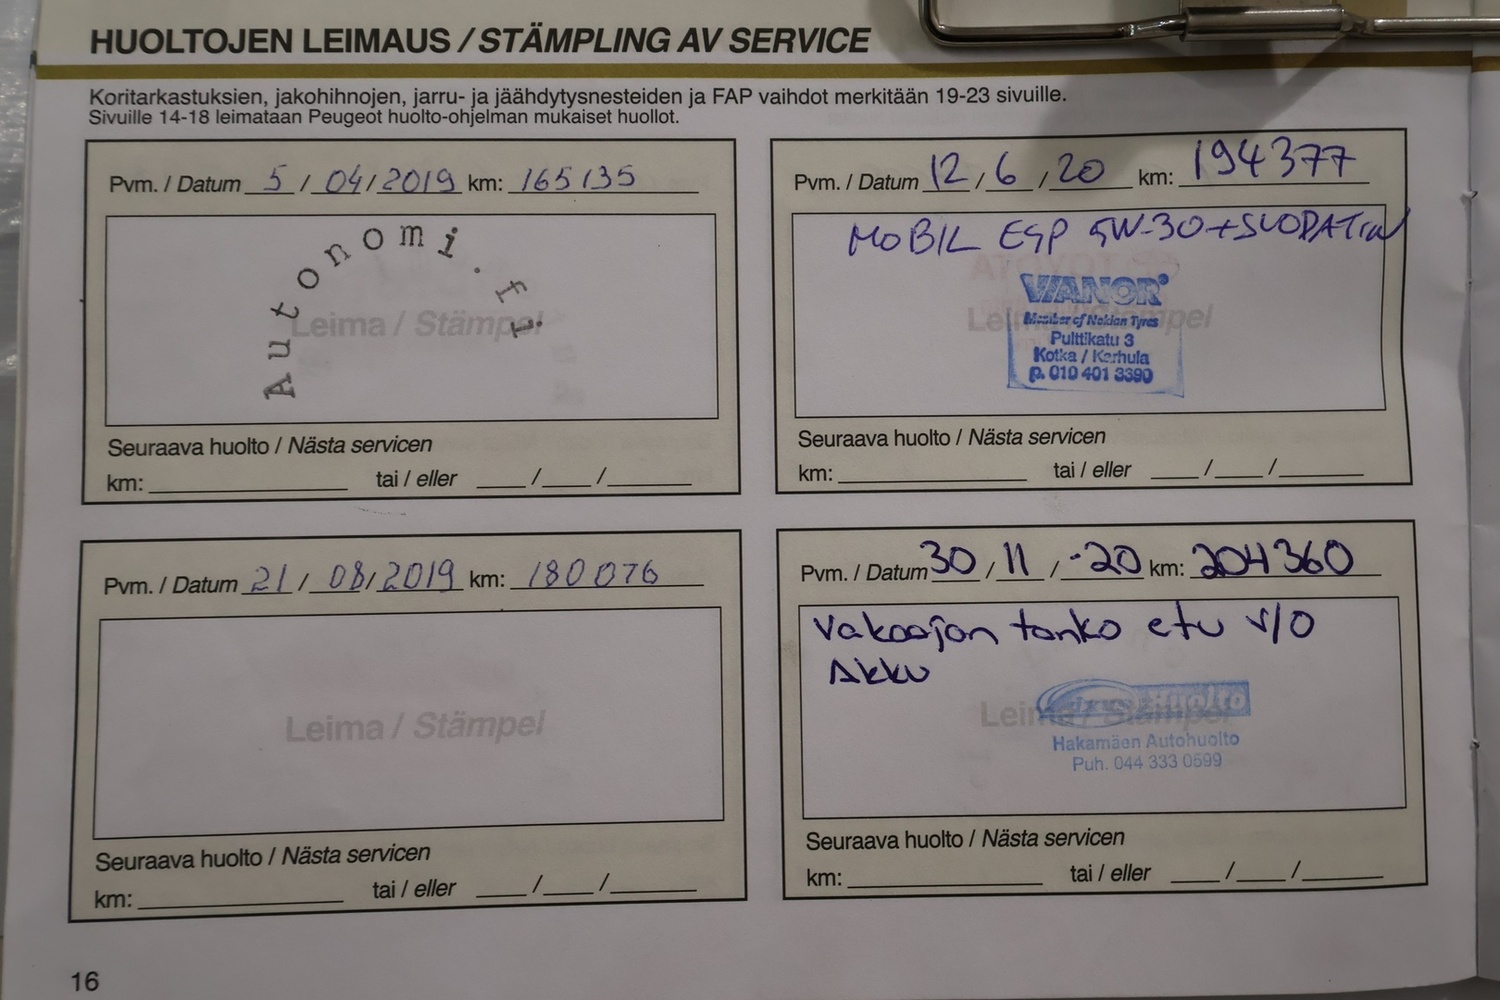 HUOLTOJEN LEIMAUS / STÄMPLING AV SERVICE
Koritarkastuksien, jakohihnojen, jarru- ja jäähdytysnesteiden ja FAP vaihdot merkitään 19-23 sivuille.
Sivuille 14-18 leimataan Peugeot huolto-ohjelman mukaiset huollot.
Pvm. / Datum 5 / 04 / 2019 km: 165135
Autonomi.fi
Leima / Stämpel
Seuraava huolto / Nästa servicen
km: tai / eller / /
Pvm. / Datum 21 / 08 / 2019 km: 180076
Leima / Stämpel
Seuraava huolto / Nästa servicen
km: tai / eller / /
Pvm. / Datum 12 / 6 / 20 km: 194377
MOBIL ESP 5W-30+SUODATIN
VIANOR
Leima / Stämpel
Member of Nokian Tyres
Pulttikatu 3
Kotka / Karhula
p. 010 401 3390
Seuraava huolto / Nästa servicen
km: tai / eller / /
Pvm. / Datum 30 / 11 / -20 km: 204360
Vakaajan tanko etu v/o
Akku
Huolto
Leima / Stämpel
Hakamäen Autohuolto
Puh. 044 333 0599
Seuraava huolto / Nästa servicen
km: tai / eller / /
16